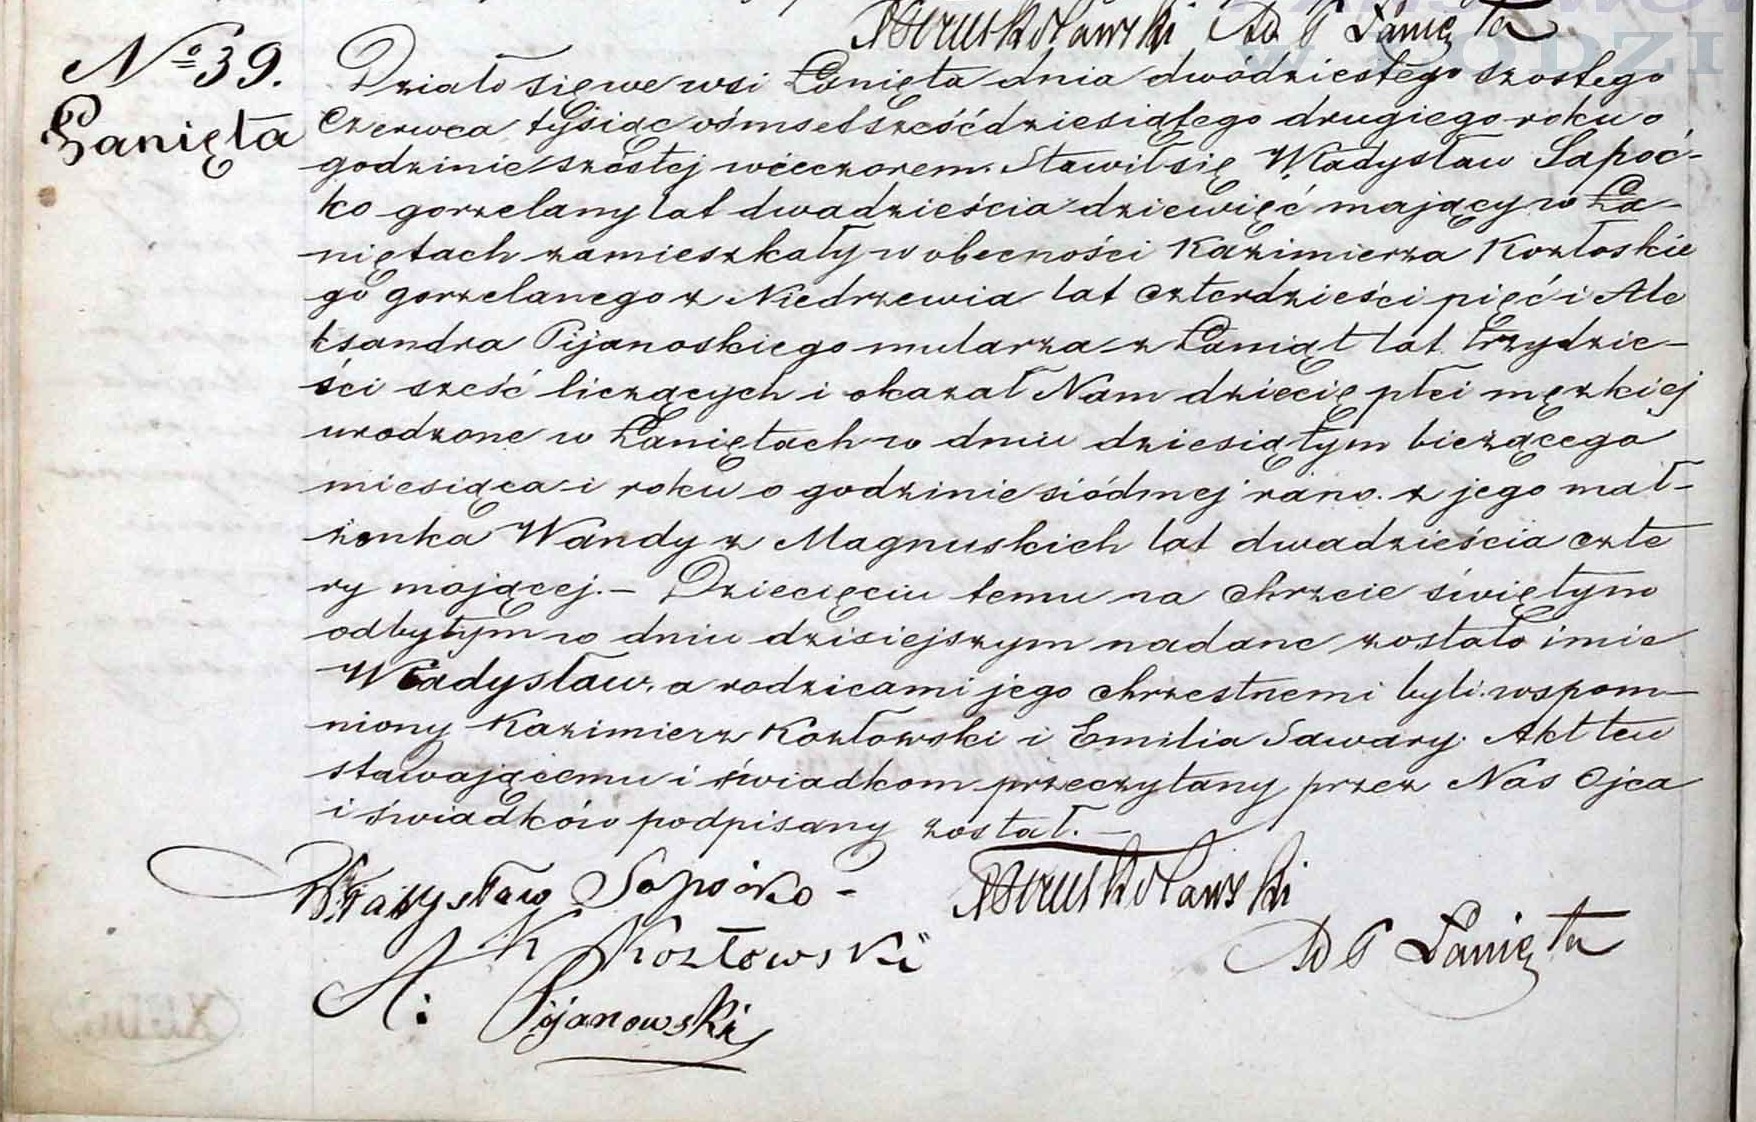 W ŁODZI
A Gruszkoławski Ad P Łanięta
No 39.
Łanięta
Działo się we wsi Łanięta dnia dwódziestego szóstego
Czerwca tysiąc ośmset sześćdziesiątego drugiego roku o
godzinie szóstej wieczorem. Stawił się Władysław Sapoć-
ko gorzelany lat dwadzieścia dziewięć mający w Ła-
niętach zamieszkały w obecności Kazimierza Kozłoskie
go gorzelanego z Niedrzewia lat czterdzieści pięć i Ale
ksandra Pijanoskiego mularza z Łaniąt lat trzydzie-
ści sześć liczących i okazał Nam dziecię płci męzkiej
urodzone w Łaniętach w dniu dziesiątym bieżącego
miesiąca i roku o godzinie siódmej rano. z jego mał-
żonka Wandy z Magnuskich lat dwadzieścia czte
ry mającej. – Dziecięciu temu na chrzcie świętym
odbytym w dniu dzisiejszym nadane zostało imie
Władysław, a rodzicami jego chrzestnemi byli wspom-
niony Kazimierz Kozłowski i Emilia Sawary. Akt ten
stawającemu i świadkom przeczytany przez Nas Ojca
i świadków podpisany został. –
Władysław Sapoćko -
K Kozłowski
Ad P Łanięta
A: Pijanowski